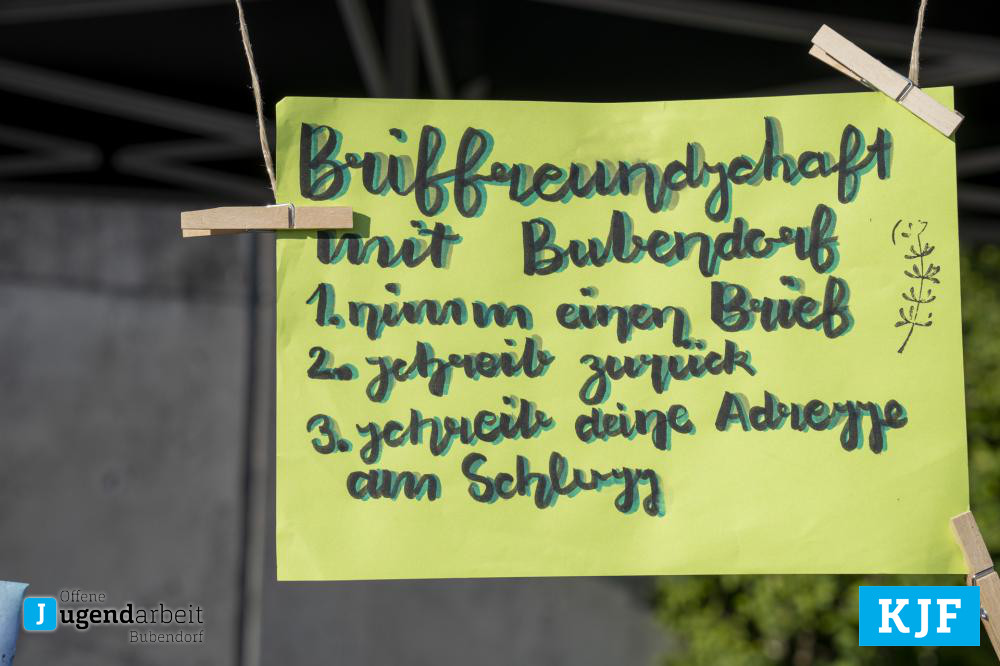 Brifffreundschaft
mit Bubendorf
1. nimm einen Brief
2. schreib zurück
3. schreib deine Adresse
am Schluss
Offene
Jugendarbeit
Bubendorf
KJF